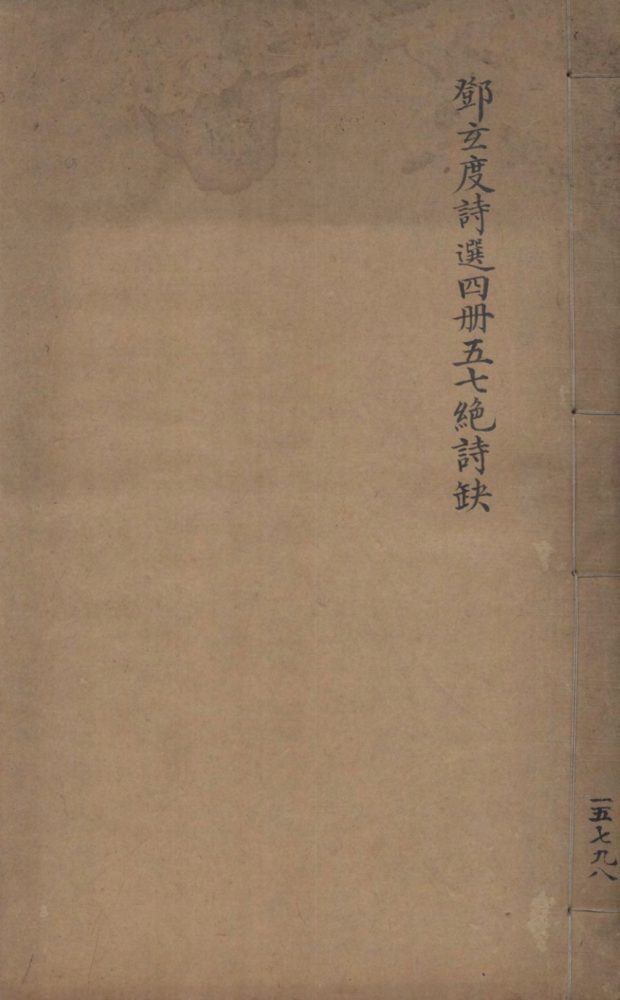 鄧玄度詩選四册五七絶詩缺
一五七九八